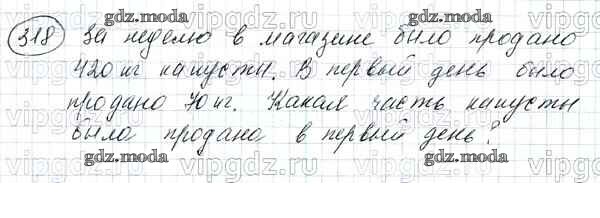 318 За неделю в магазине было продано
420 кг капусты. В первый день было
продано 70 кг. Какая часть капусты
была продана в первый день?
gdz.moda
vipgdz.ru